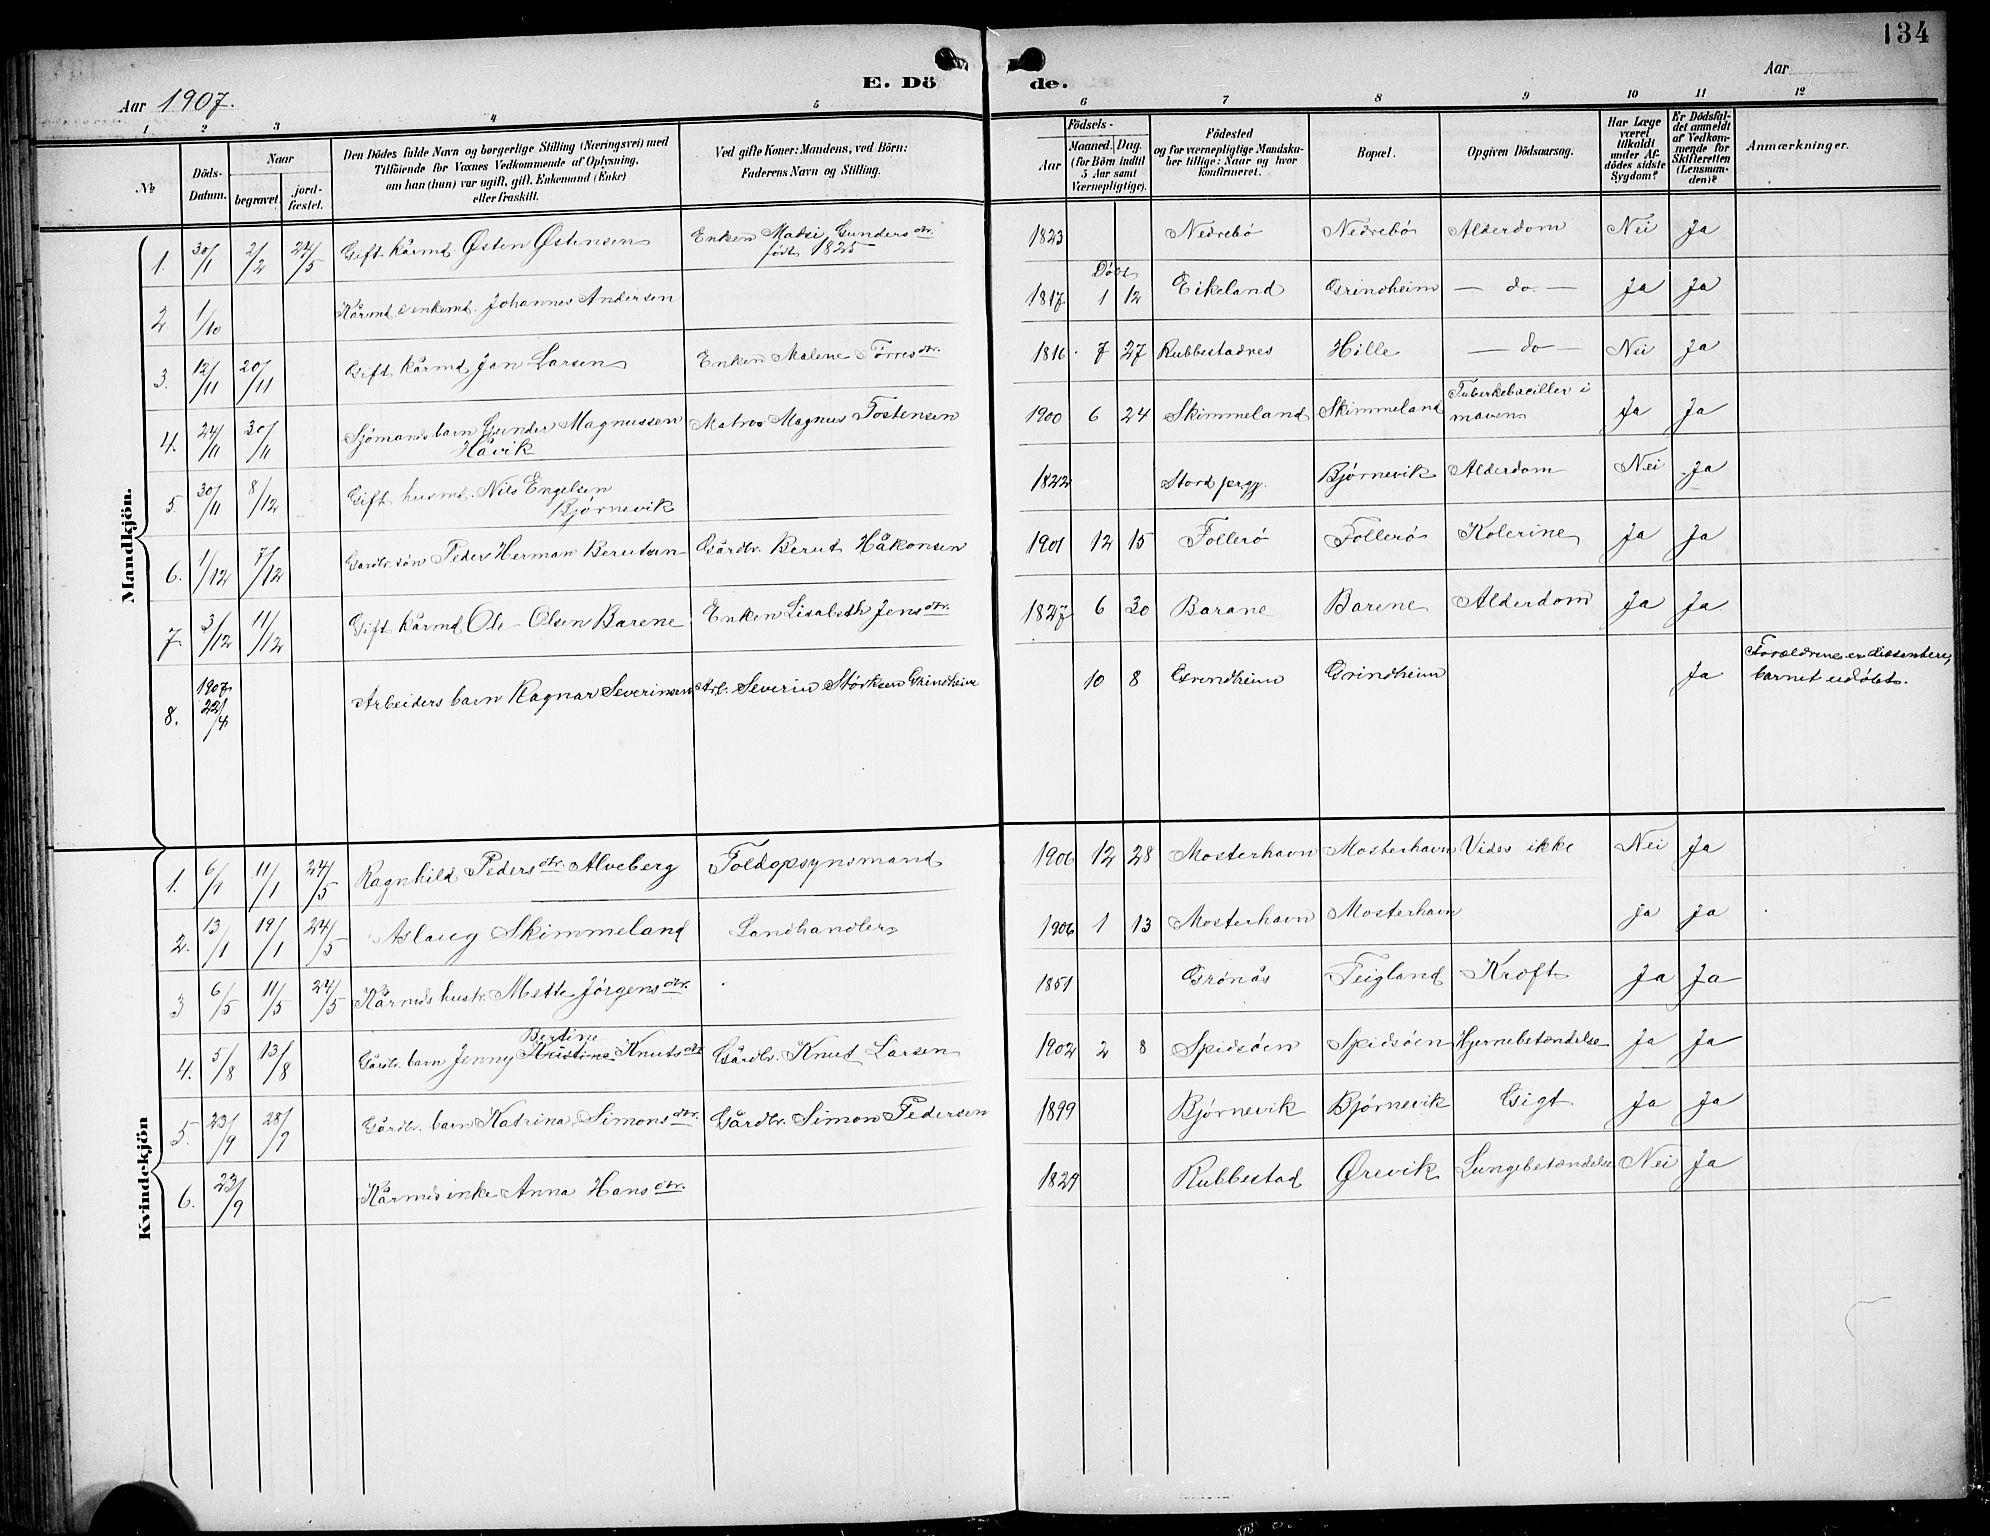 134
E. Döde.
Aar 1907.
Aar
1 2 3 4 5 6 7 8 9 10 11 12
No
Döds-Datum.
Naar
begravet.
jord-fæstet.
Den Dödes fulde Navn og borgerlige Stilling (Næringsvei) med
Tilföiende for Voxnes Vedkommende af Oplysning,
om han (hun) var ugift, gift, Enkemand (Enke)
eller fraskilt.
Ved gifte Koner: Mandens, ved Börn:
Faderens Navn og Stilling.
Födsels-
Aar
Maaned. Dag.
(for Börn indtil
5 Aar samt
Værnepligtige).
Födested
og for værnepligtige Mandska-
ber tillige: Naar og hvor
konfirmeret.
Bopæl.
Opgiven Dödsaarsag.
Har Læge
været
tilkaldt
under Af-
dödes sidste
Sygdom?
Er Dödsfal-
det anmeldt
af Vedkom-
mende for
Skifteretten
(Lensman-
den)?
Anmærkninger.
Mandkjön.
1. 30/1 2/2 24/5 Gift kårmd Østen Østensen Enken Madsi Gundersdtr. født 1825 1823 Nedrebö Nedrebö Alderdom Nei Ja
2 1/10 Kårmd enkemd. Johannes Andersen 1817 Döbt 1 12 Eikeland Grindheim — do. — Ja Ja
3. 12/11 20/11 Gift kårmd Jan Larsen Enken Malene Torresdtr. 1816 7 27 Rubbestadnes Hille — do — Nei Ja
4. 24/11 30/11 Sjömands barn Gunder Magnussen Håvik Matros Magnus Tostensen 1900 6 24 Skimmeland Skimmeland Tuberkebaciller i maven Ja Ja
5 30/11 8/12 Gift husmd. Nils Engelsen Bjørnevik 1822 Stord prgj. Bjørnevik Alderdom Nei Ja
6. 1/12 7/12 Gardbr. sön Peder Herman Berutsen Gårdbr. Berut Håkonsen 1901 12 15 Follerö Follerö Kolerine Ja Ja
7. 3/12 11/12 Gift kårmd Ole Olsen Barene Enken Lisabeth Jensdtr. 1827 6 30 Barane Barene Alderdom Ja Ja
8. 1907 22/4 Arbeiders barn Ragnar Severinsen Arb. Severin Störksen Grindheim 10 8 Grindheim Grindheim Ja Forældrene er dissentere, barnet udöbt.
Kvindekjön
1. 6/1 11/1 24/5 Ragnhild Pedersdtr. Alveberg Toldopsynsmand 1906 12 28 Mosterhavn Mosterhavn Vides ikke Nei Ja
2. 13/1 19/1 24/5 Aslaug Skimmeland Landhandler 1906 1 13 Mosterhavn Mosterhavn Ja Ja
3 6/5 11/5 24/5 Kårmds hustr. Mette Jörgensdtr. 1851 Grönås Teigland Kræft Ja Ja
4. 5/8 13/8 Gårdbr. barn Jenny Kristine Bertine Knutsdtr Gårdbr. Knut Larsen 1902 2 8 Spidsöen Spidsöen Hjernebetændelse Ja Ja
5. 23/9 28/9 Gårdbr. barn Katrina Simonsdtr. Gårdbr. Simon Pedersen 1899 Bjørnevik Bjørnevik Gigt Ja Ja
6. 23/9 Kårmds enke Anna Hansdtr. 1829 Rubbestad Ørevik Lungebetændelse Nei Ja